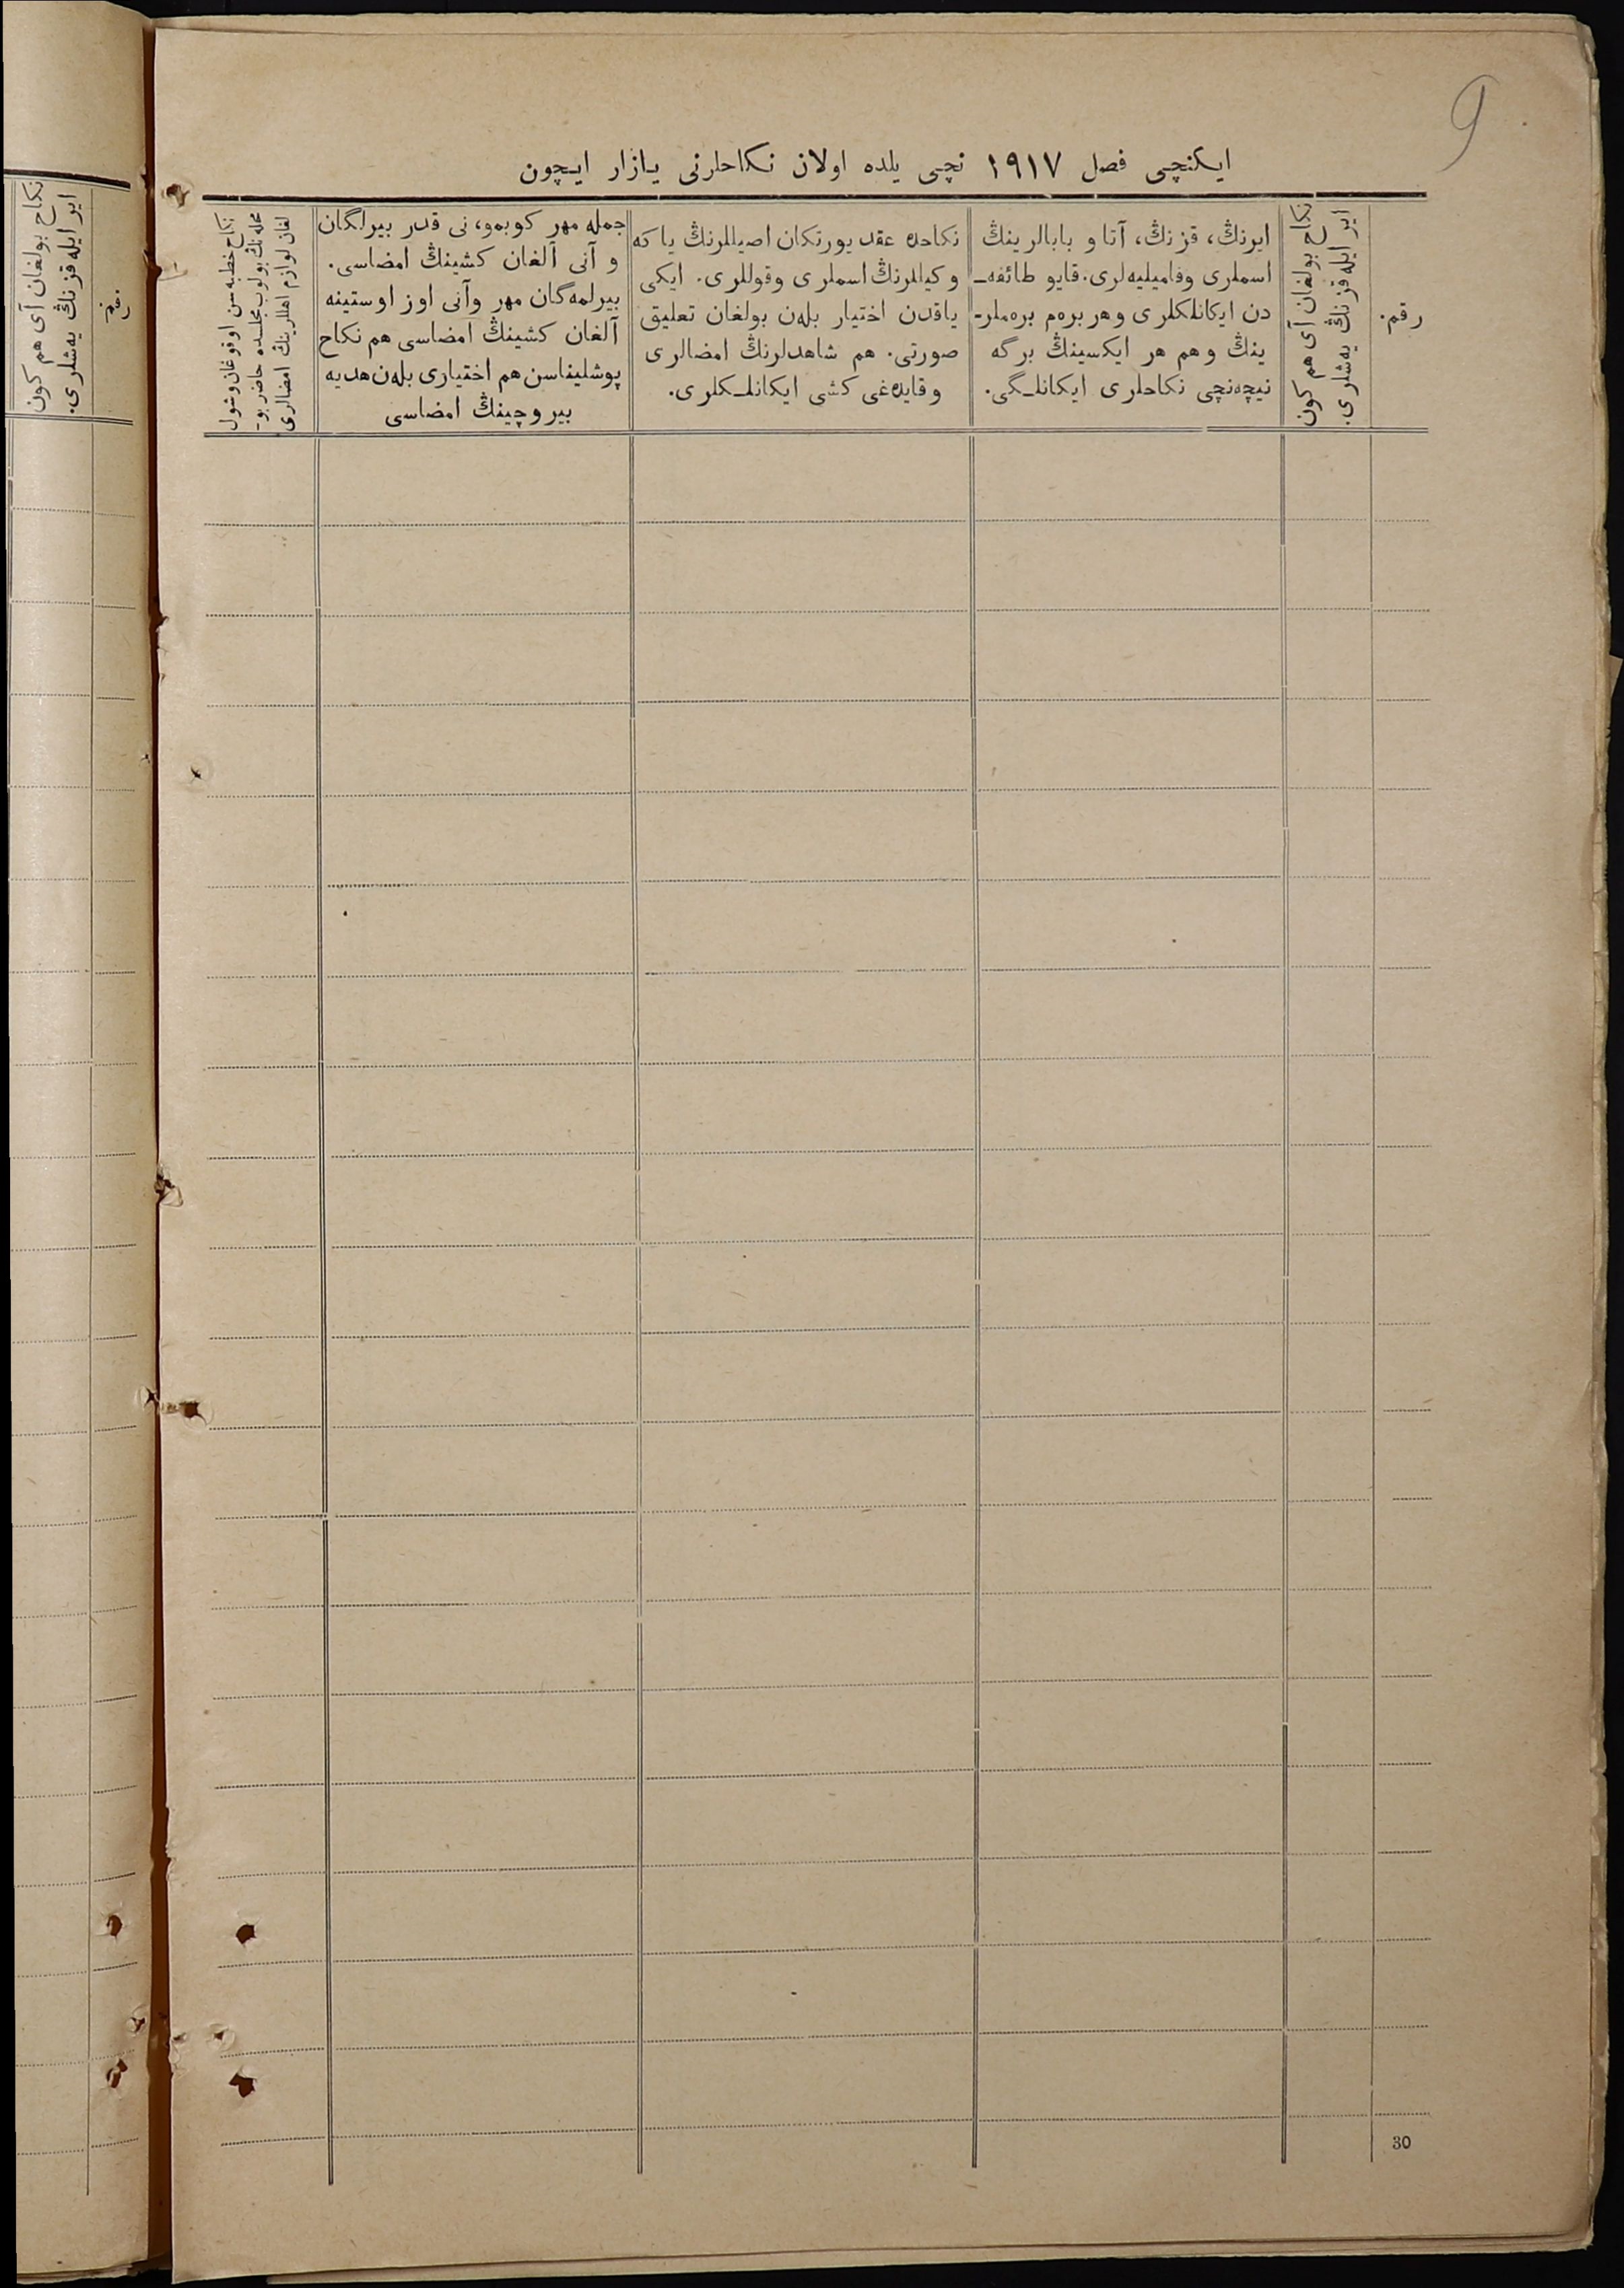 9
ايكنچی فصل ١٩١٧ نچی يلده اولان نكاحلرنی يازار ايچون
رقم.
نكاح بولغان آی هم كون
اير ايله قزنڭ يه‌شلری.
ايرنڭ، قزنڭ، آتا و بابالرينڭ
اسملری وفاميليه‌لری. قايو طائفه‌ـ
دن ايكانلكلری وهر بره‌م بره‌ملرـ
ينڭ وهم هر ايكسينڭ برگه
نيچه‌نچی نكاحلری ايكانلـگی.
نكاحده عقد يورتكان اصيللرنڭ ياكه
وكيللرنڭ اسملری وقوللری. ايكی
ياقدن اختيار بله‌ن بولغان تعليق
صورتی. هم شاهدلرنڭ امضالری
وقايده‌غی كشی ايكانلـكلری.
جمله مهر كوبمو، نی قدر بيرلگان
و آنی آلغان كشينڭ امضاسی.
بيرلمه‌گان مهر وآنی اوز اوستينه
آلغان كشينڭ امضاسی هم نكاح
پوشليناسن هم اختياری بله‌ن هديه
بيروچينڭ امضاسی
نكاح خطبه‌سن اوقوغان وشول
محله‌نڭ بولوب مجلسده حاضر بوـ
لغان لوازم اهللرينڭ امضالری
30
رقم
نكاح بولغان آی هم كون
اير ايله قزنڭ يه‌شلری.